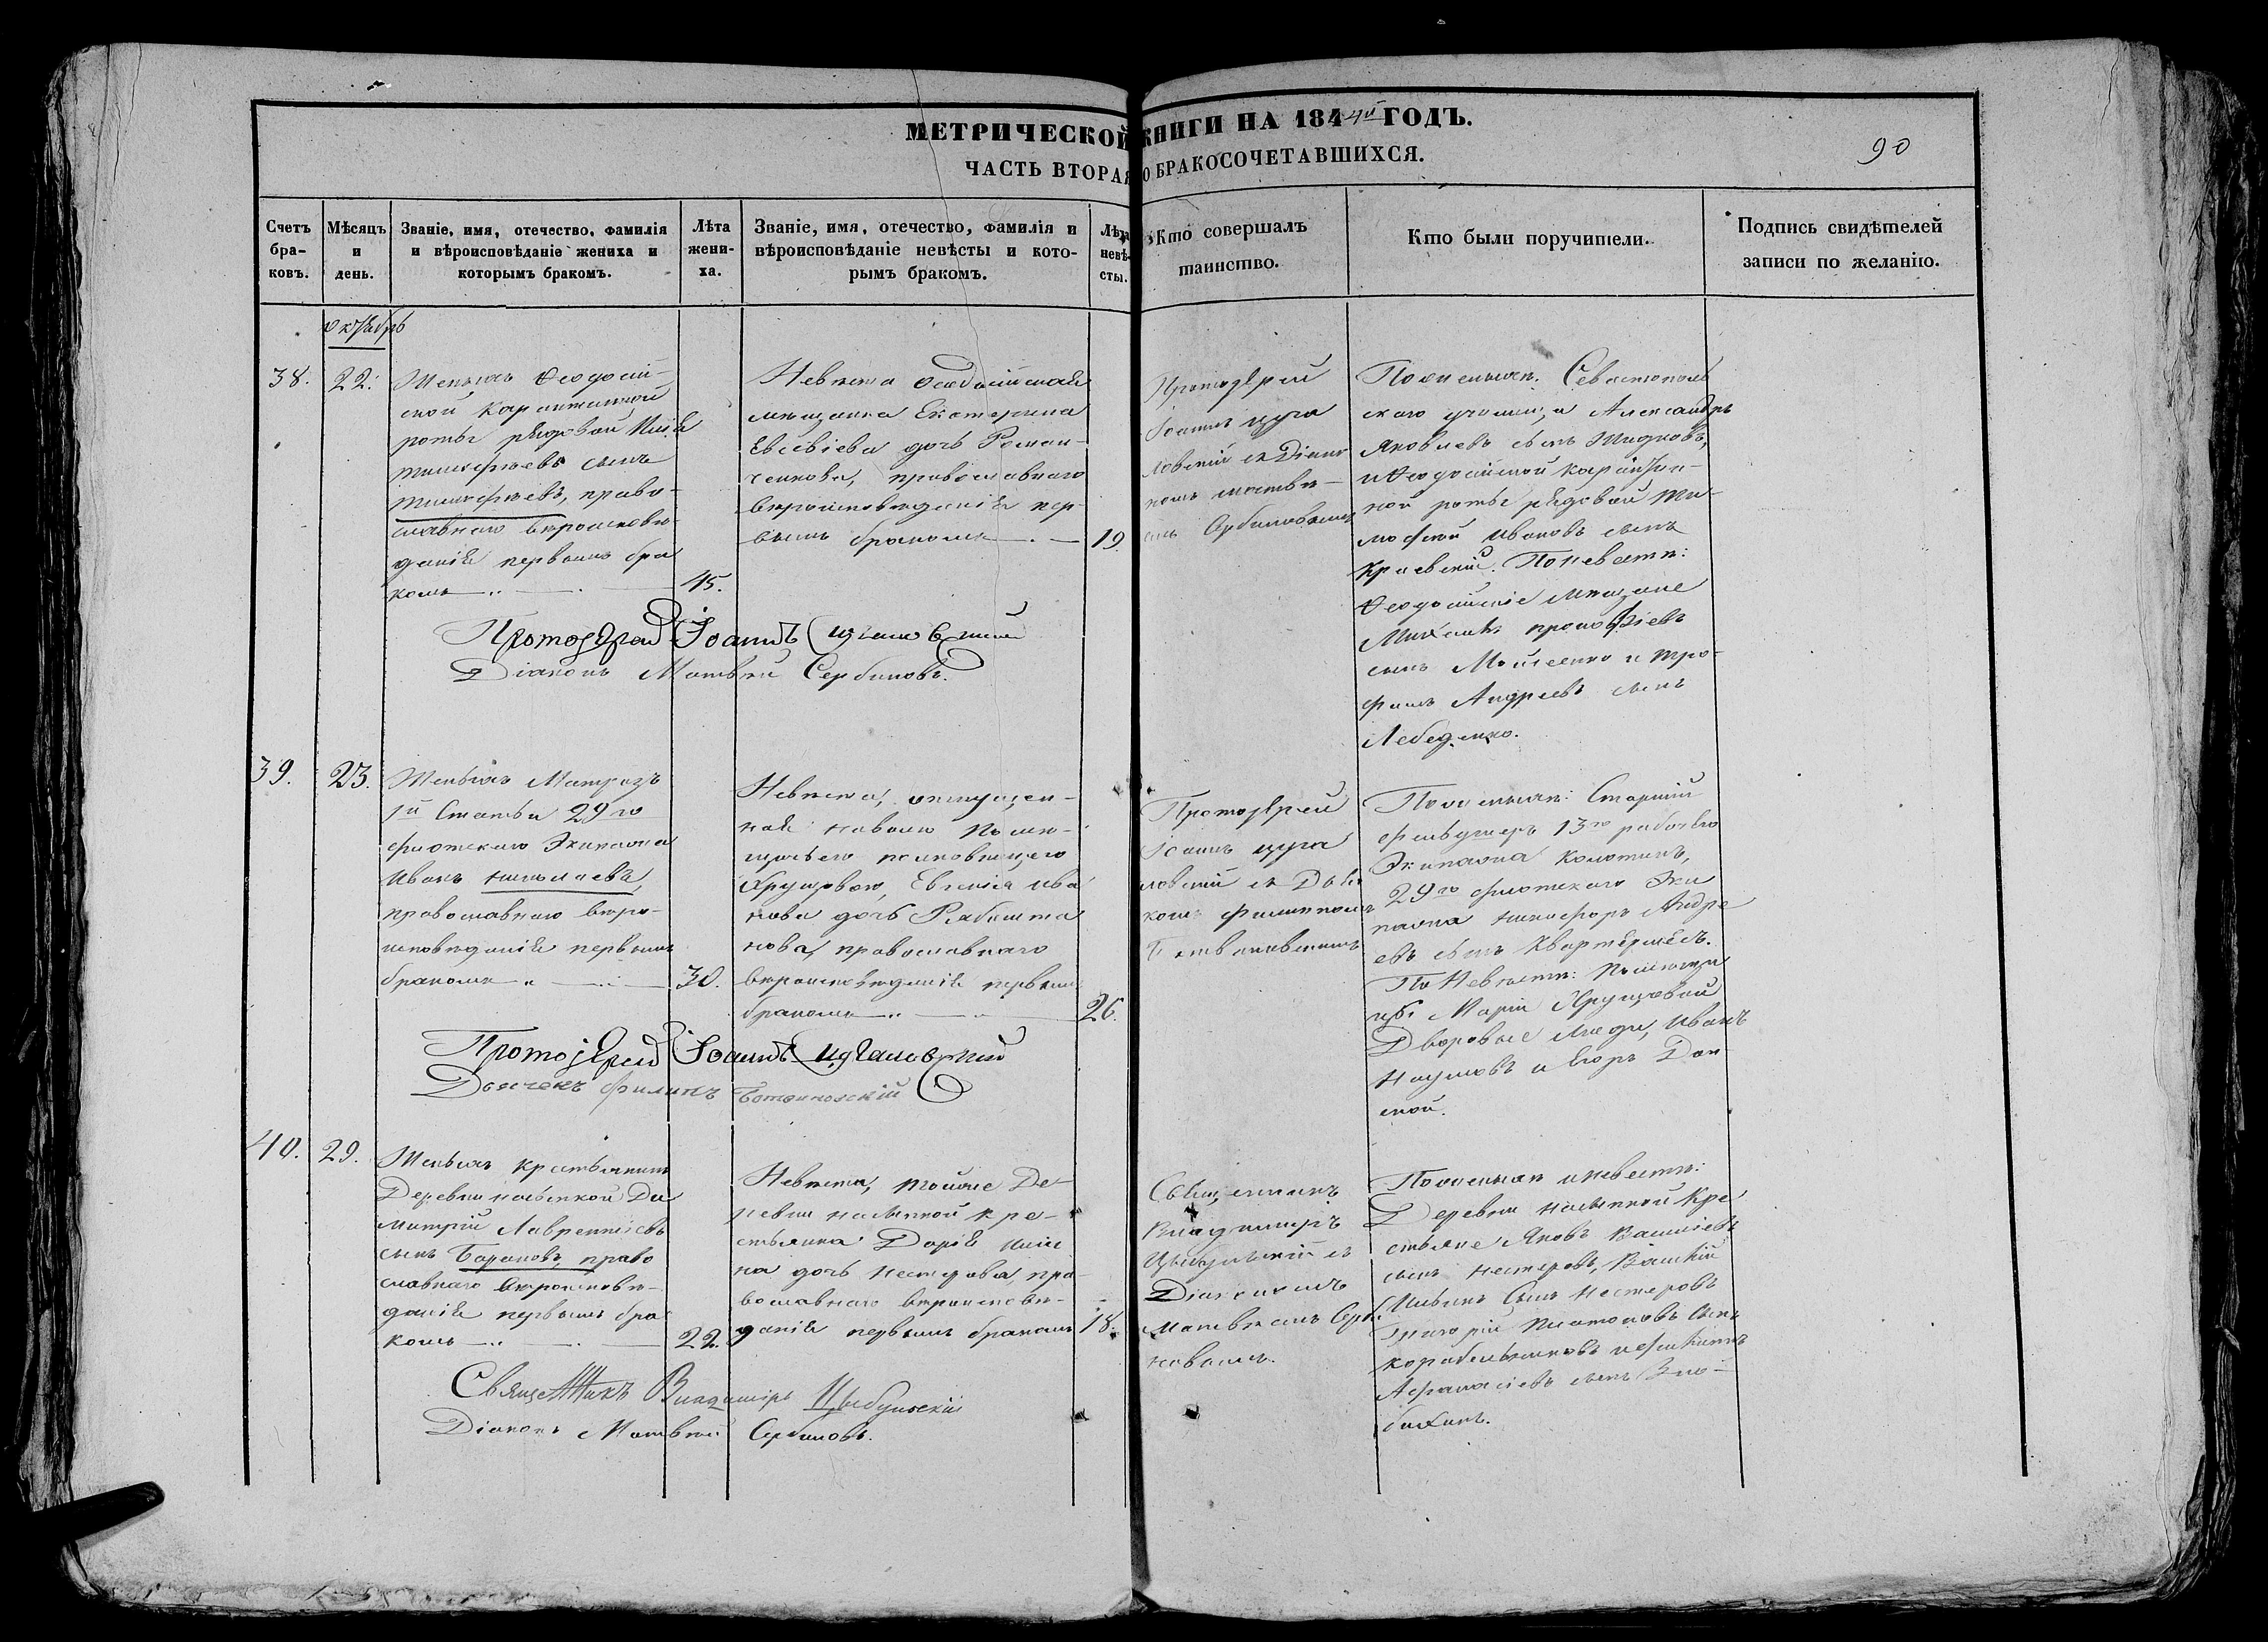 МЕТРИЧЕСКОЙ КНИГИ НА 1844й ГОДЪ.
ЧАСТЬ ВТОРАЯ О БРАКОСОЧЕТАВШИХСЯ.
90
Счетъ бра-ковъ.
Мѣсяцъ и день.
Званіе, имя, отечество, фамилія и вѣроисповѣданіе жениха и которымъ бракомъ.
Лѣта жени-ха.
Званіе, имя, отечество, фамилія и вѣроисповѣданіе невѣсты и кото-рымъ бракомъ.
Лѣта невѣ-сты.
Кто совершалъ таинство.
Кто были поручители.
Подпись свидѣтелей записи по желанію.
октябрь
38.
22.
Женихъ Ѳеодосій-
ской карантинной
роты рядовой
сынъ
право-
славнаго вѣроисповѣ-
данія первымъ бра
комъ
45.
Невѣста Ѳеодосійская
мѣщанка Екатерина
Евсевіева дочь Роман-
ченкова, православнаго
вѣроисповѣданія пер-
вымъ бракомъ
19
Протоіерей
Іоаннъ Цуга
ловскій съ Діако
номъ Матвѣ-
емъ Сербиновымъ
По женихѣ: Севастополь
скаго училища Александръ
Яковлевъ сынъ
и Ѳеодосійской карантин-
ной роты рядовой Ти-
мофей Ивановъ сынъ
Краевскій. По невѣстѣ:
Ѳеодосійскіе мѣщане
Михаилъ Прокофіевъ
сынъ Мойсеенко и Тро-
фимъ Андреевъ сынъ
Лебеденко.
Протоіерей Іоаннъ Цугаловскій
Діаконъ Матвѣй Сербиновъ.
39.
23.
Женихъ Матрозъ
1й Статьи 29го
флотскаго Экипажа
Иванъ Николаевъ,
православнаго вѣро-
исповѣданія первымъ
бракомъ
30.
Невѣста, отпущен-
ная на волю помѣ-
щицею полковницею
Хрущовою, Евгенія Ива
нова дочь
нова, православнаго
вѣроисповѣданія первымъ
бракомъ
26.
Протоіерей
Іоаннъ Цуга
ловскій съ Дьяч
комъ Филиппомъ
По женихѣ: Старшій
фельдшеръ 13го рабочего
Экипажа Колотинъ,
29го флотскаго Эки
пажа Никифоръ Андре
евъ сынъ
По Невѣстѣ: Помѣщи
цы Маріи Хрущовой
Дворовые люди, Иванъ
Наумовъ и Егоръ Дон
ской.
Протоіерей Іоаннъ Цугаловскій
Дьячекъ Филипъ
40.
29.
Женихъ крестьянинъ
Деревни Насыпкой Ди
митрій Лаврентіевъ
сынъ Барановъ, право
славнаго вѣроисповѣ-
данія первымъ бра
комъ
22.
Невѣста, той же Де-
ревни Насыпкой кре-
стьянка Дарія Ильи
на дочь Нестерова, пра-
вославнаго вѣроисповѣ-
данія первымъ бракомъ
18.
Священникъ
Владиміръ
Цыбульскій съ
Діакономъ
Матвѣемъ Серби
новымъ.
По женихѣ и невѣстѣ:
Деревни Насыпкой Кре
стьяне Яковъ Васильевъ
сынъ Нестеровъ, Василій
Ильинъ Сынъ Нестеровъ
Григорій Платоновъ Сынъ
Корабельниковъ и
Афанасіевъ сынъ Зло-
бихинъ.
Священникъ Владиміръ Цыбульскій
Діаконъ Матвѣй Сербиновъ.